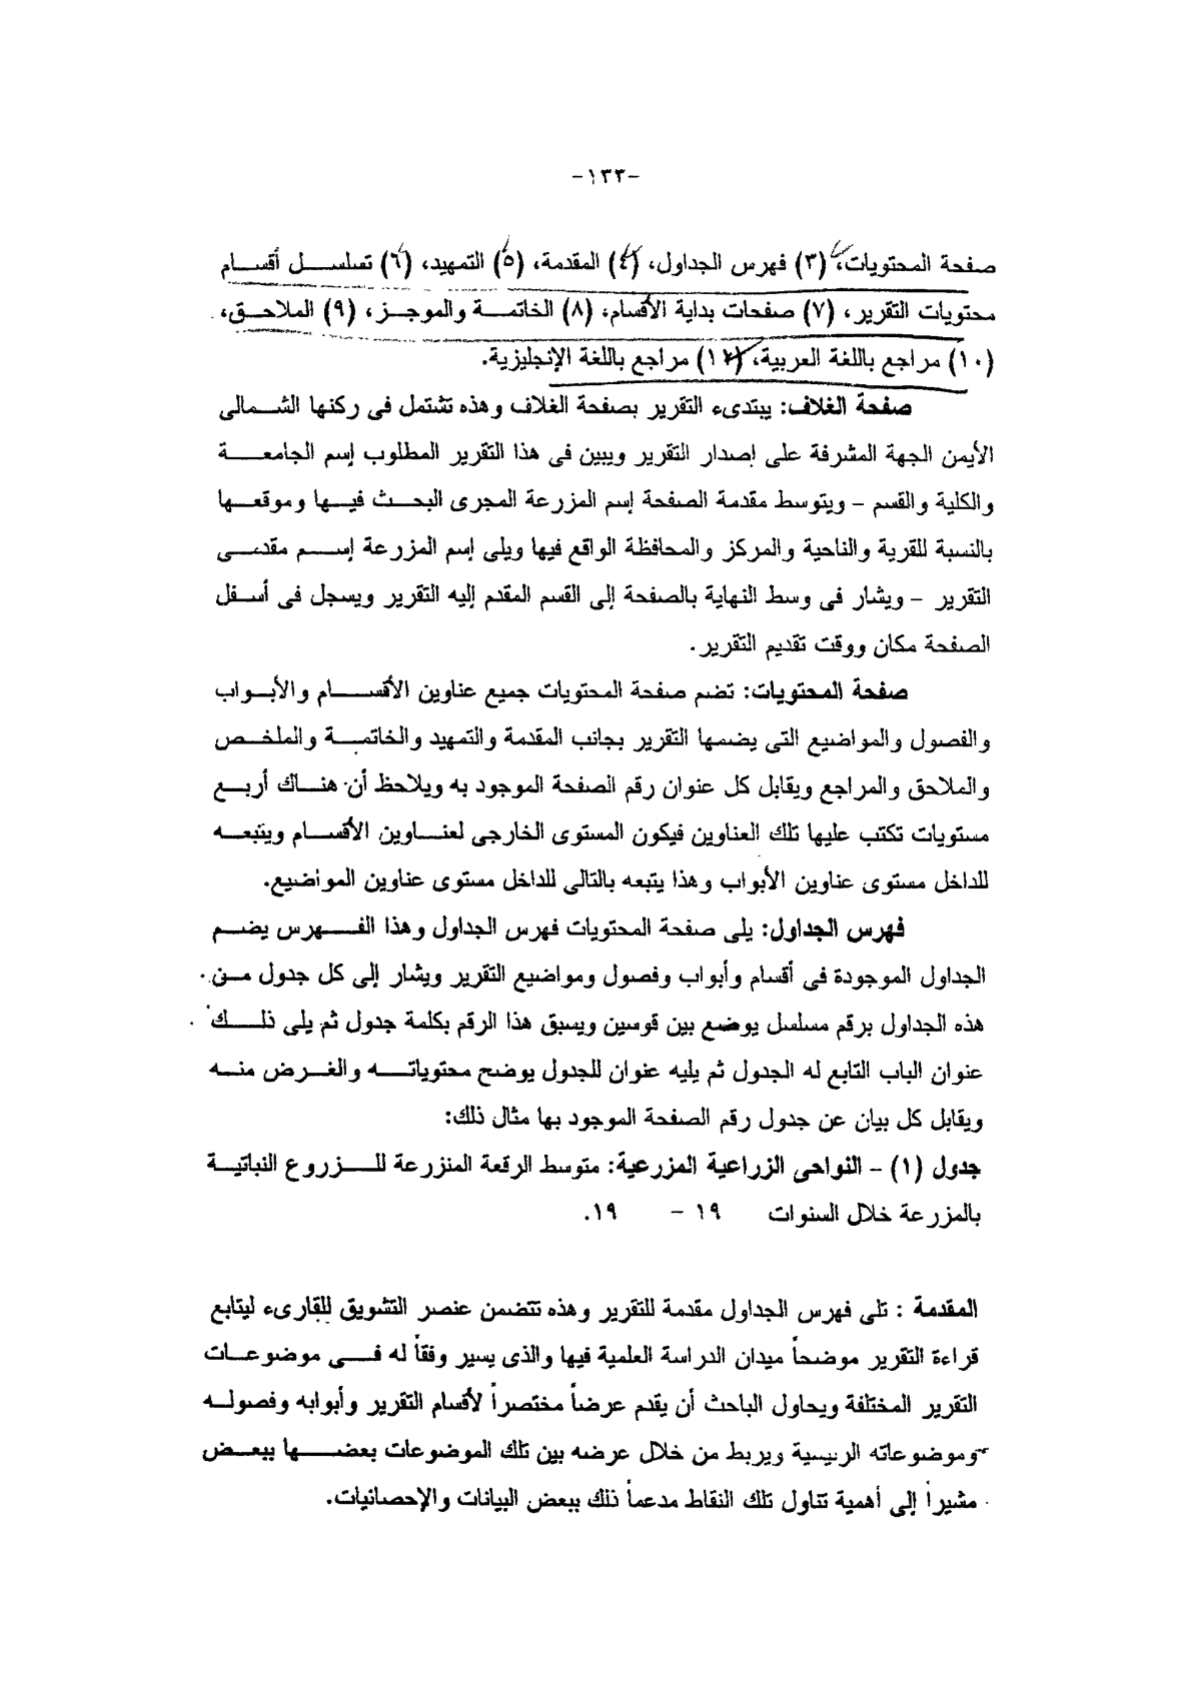 -١٣٣-
صفحة المحتويات، (٣) فهرس الجداول، (٤) المقدمة، (٥) التمهيد، (٦) تسلسل أقسام
محتويات التقرير، (٧) صفحات بداية الأقسام، (٨) الخاتمة والموجز، (٩) الملاحق،
(١٠) مراجع باللغة العربية، (١١) مراجع باللغة الإنجليزية.
صفحة الغلاف: يبتدىء التقرير بصفحة الغلاف وهذه تشتمل فى ركنها الشمالى
الأيمن الجهة المشرفة على إصدار التقرير ويبين فى هذا التقرير المطلوب إسم الجامعة
والكلية والقسم – ويتوسط مقدمة الصفحة إسم المزرعة المجرى البحث فيها وموقعها
بالنسبة للقرية والناحية والمركز والمحافظة الواقع فيها ويلى إسم المزرعة إسم مقدمى
التقرير – ويشار فى وسط النهاية بالصفحة إلى القسم المقدم إليه التقرير ويسجل فى أسفل
الصفحة مكان ووقت تقديم التقرير.
صفحة المحتويات: تضم صفحة المحتويات جميع عناوين الأقسام والأبواب
والفصول والمواضيع التى يضمها التقرير بجانب المقدمة والتمهيد والخاتمة والملخص
والملاحق والمراجع ويقابل كل عنوان رقم الصفحة الموجود به ويلاحظ أن هناك أربع
مستويات تكتب عليها تلك العناوين فيكون المستوى الخارجى لعناوين الأقسام ويتبعه
للداخل مستوى عناوين الأبواب وهذا يتبعه بالتالى للداخل مستوى عناوين المواضيع.
فهرس الجداول: يلى صفحة المحتويات فهرس الجداول وهذا الفهرس يضم
الجداول الموجودة فى أقسام وأبواب وفصول ومواضيع التقرير ويشار إلى كل جدول من
هذه الجداول برقم مسلسل يوضع بين قوسين ويسبق هذا الرقم بكلمة جدول ثم يلى ذلك
عنوان الباب التابع له الجدول ثم يليه عنوان للجدول يوضح محتوياته والغرض منه
ويقابل كل بيان عن جدول رقم الصفحة الموجود بها مثال ذلك:
جدول (١) – النواحى الزراعية المزرعية: متوسط الرقعة المنزرعة للزروع النباتية
بالمزرعة خلال السنوات ١٩ – ١٩.
المقدمة : تلى فهرس الجداول مقدمة للتقرير وهذه تتضمن عنصر التشويق للقارىء ليتابع
قراءة التقرير موضحاً ميدان الدراسة العلمية فيها والذى يسير وفقاً له فى موضوعات
التقرير المختلفة ويحاول الباحث أن يقدم عرضاً مختصراً لأقسام التقرير وأبوابه وفصوله
وموضوعاته الرئيسية ويربط من خلال عرضه بين تلك الموضوعات بعضها ببعض
مشيراً إلى أهمية تناول تلك النقاط مدعماً ذلك ببعض البيانات والإحصائيات.